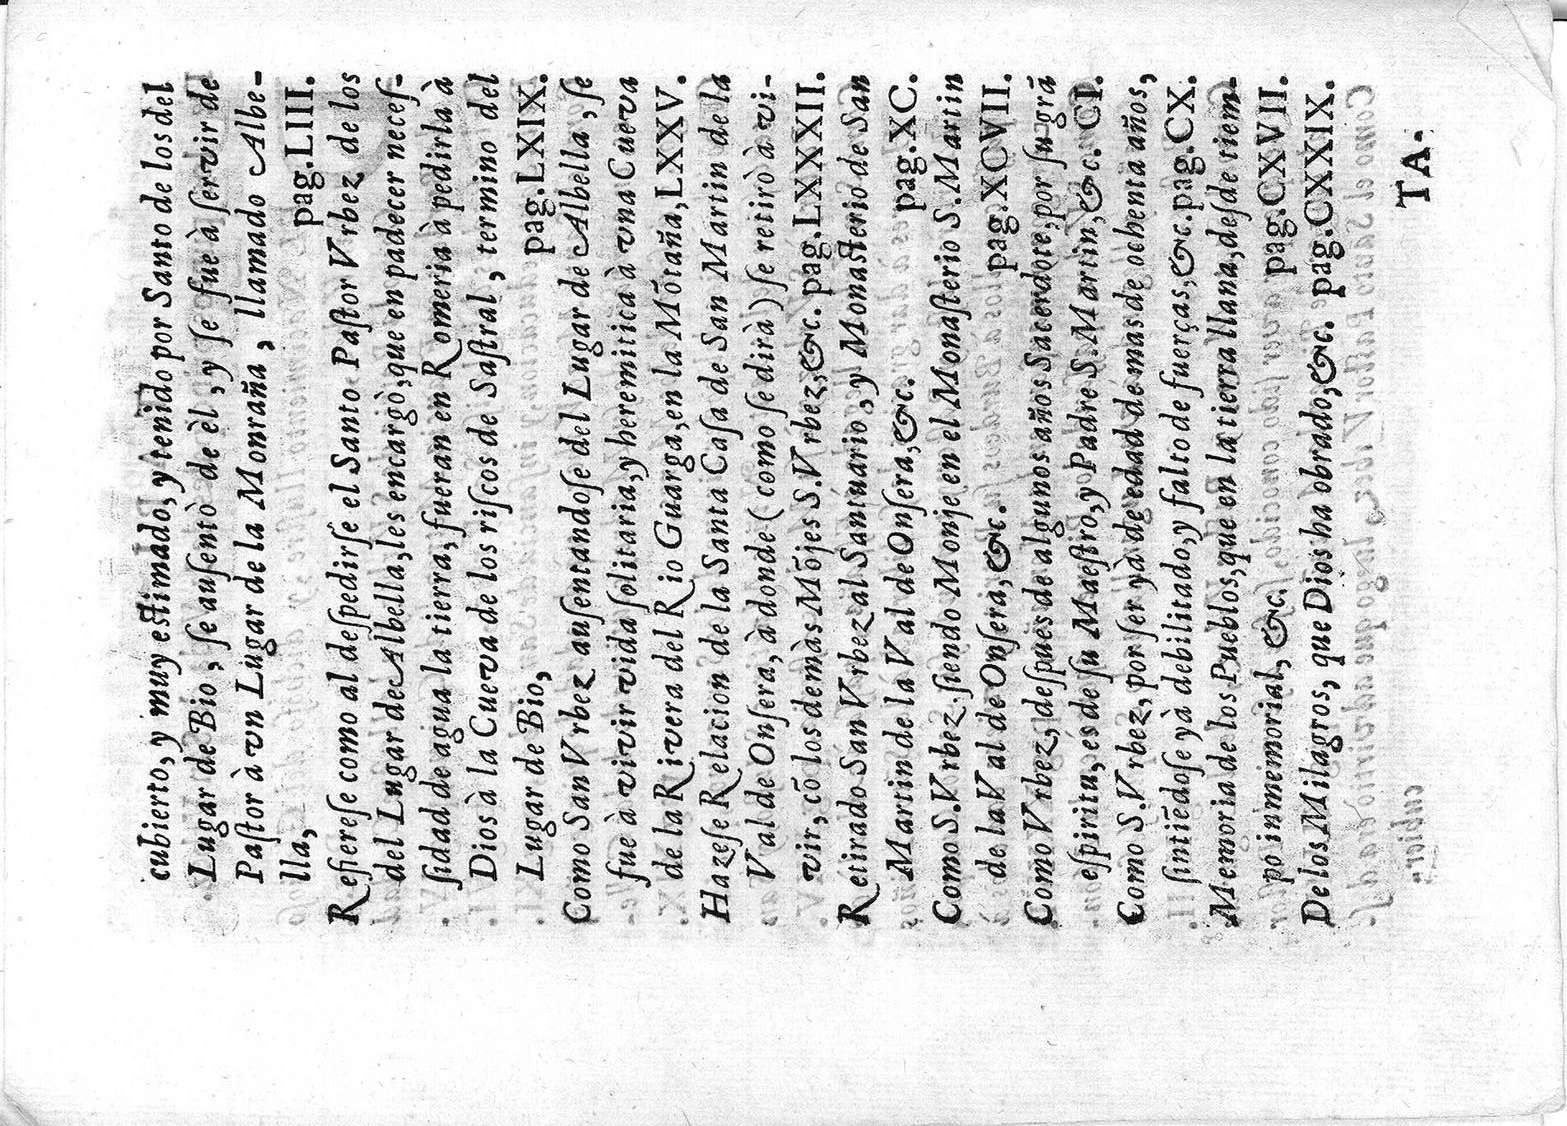 cubierto, y muy estimado, y tenido por Santo de los del
Lugar de Bio, ſe auſentò de èl, y ſe fue à ſervir de
Paſtor à vn Lugar de la Monraña, llamado Albe-
lla, pag. LIII.
Refiereſe como al deſpedirſe el Santo Paſtor Vrbez de los
del Lugar de Albella, les encargò, que en padecer neceſ-
ſidad de agua la tierra, fueran en Romeria à pedirla à
Dios à la Cueva de los riſcos de Saſtral, termino del
Lugar de Bio, pag. LXIX.
Como San Vrbez auſentandoſe del Lugar de Albella, ſe
fue à vivir vida ſolitaria, y heremitica à vna Cueva
de la Rivera del Rio Guarga, en la Mõtaña, LXXV.
Hazeſe Relacion de la Santa Caſa de San Martin de la
Val de Onſera, à donde (como ſe dirà) ſe retirò à vi-
vir, cõ los demàs Mõjes S. Vrbez, &c. pag. LXXXII.
Retirado San Vrbez al Santuario, y Monaſterio de San
Martin de la Val de Onſera, &c. pag. XC.
Como S. Vrbez, ſiendo Monje en el Monaſterio S. Martin
de la Val de Onſera, &c. pag. XCVII.
Como Vrbez, deſpues de algunos años Sacerdote, por ſu grã
eſpiritu, es de ſu Maeſtro, y Padre S. Martin, &c. CI.
Como S. Vrbez, por ſer yà de edad de mas de ochenta años,
ſintiẽdoſe yà debilitado, y falto de fuerças, &c. pag. CX.
Memoria de los Pueblos, que en la tierra llana, deſde tiem-
po inmemorial, &c. pag. CXVII.
De los Milagros, que Dios ha obrado, &c. pag. CXXIX.
TA.